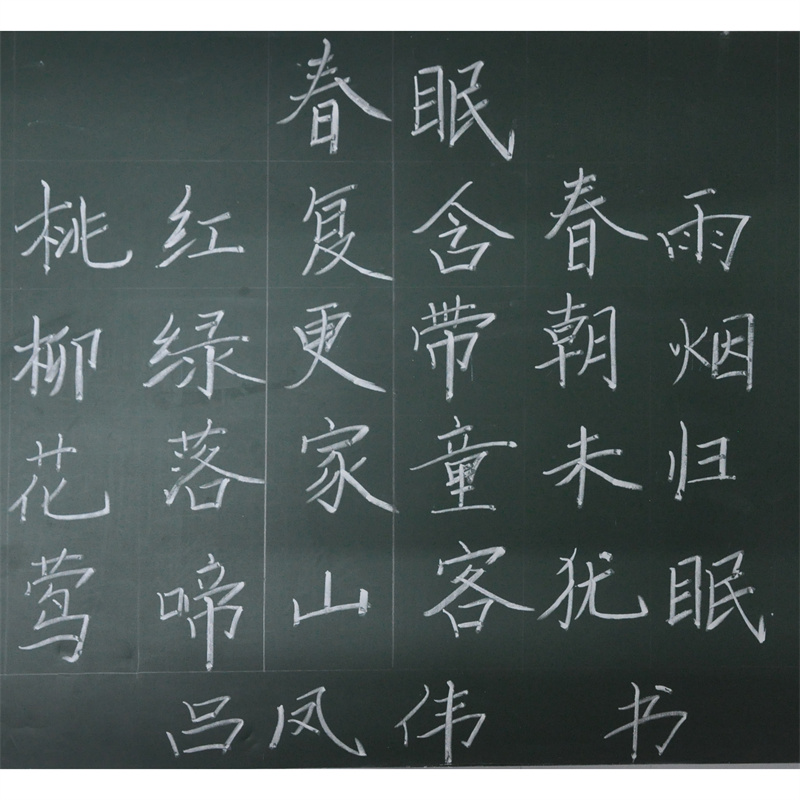 春眠
桃红复含春雨
柳绿更带朝烟
花落家童未归
莺啼山客犹眠
吕凤伟 书